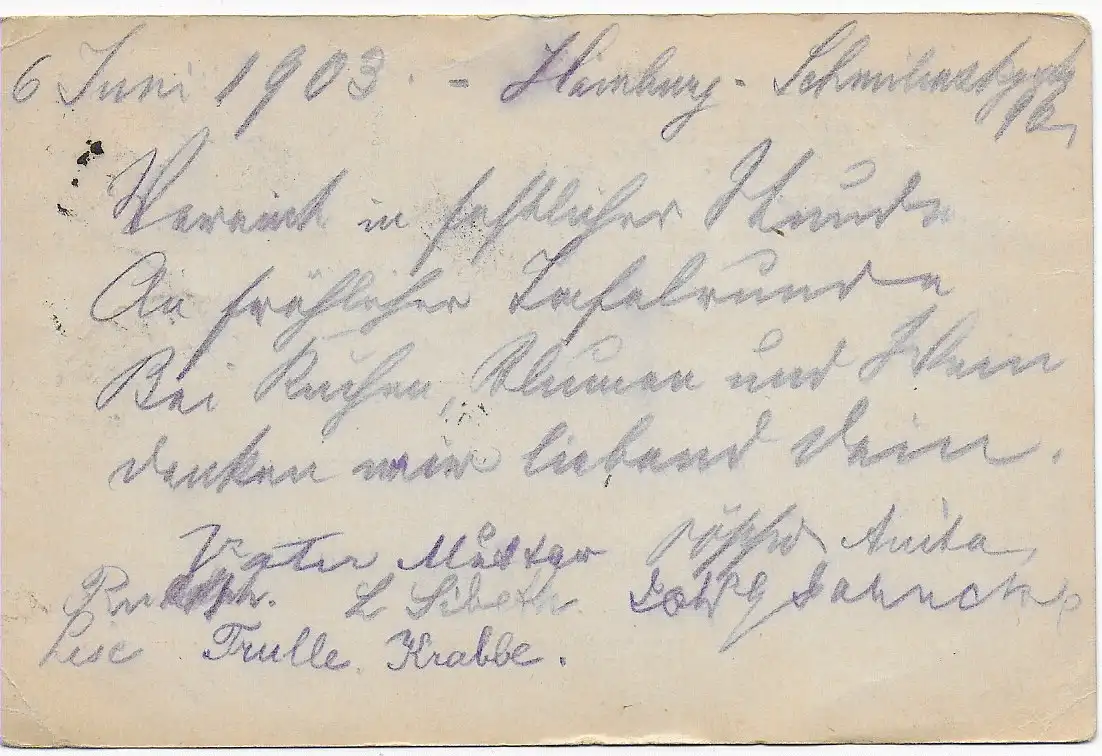 6 Juni 1903. - Hamburg -
16,
Vereint in festlicher Stunde
An fröhlicher Tafelrunde
Bei Kuchen, Blumen und Wein
denken wir liebend Dein.
Vater Mutter Anita
L Sibeth.
Lise Trulle. Krabbe.